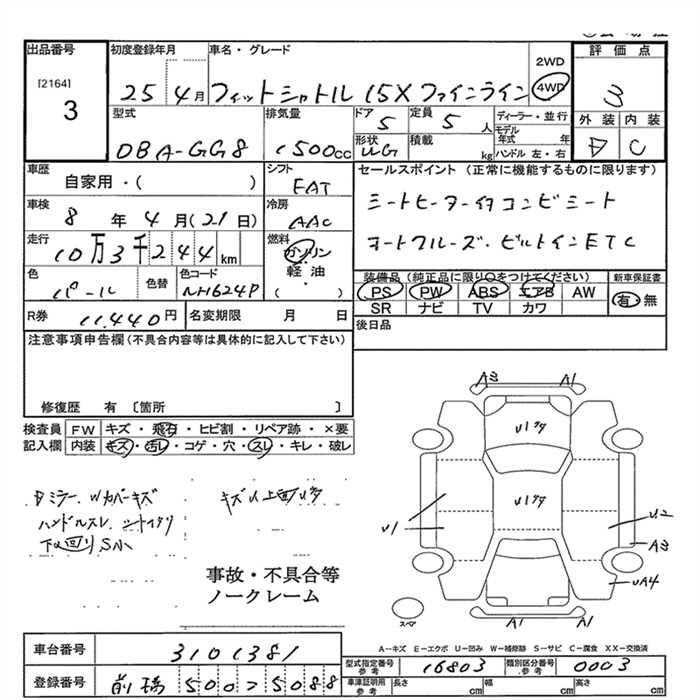 出品番号
[2164]
3
初度登録年月
25 4月
車名・グレード
フィットシャトル 15X ファインライン
2WD
4WD
評価点
3
外装 内装
D C
型式
DBA-GG8
排気量
1500cc
ドア
5
定員
5人
形状
UG
積載
kg
ディーラー・並行
モデル年式 年
ハンドル 左・右
車歴
自家用・( )
シフト
FAT
車検
8年4月(21日)
冷房
AAC
走行
10万3千244km
燃料
ガソリン
軽油
( )
色
パール
色替
色コード
NH624P
セールスポイント (正常に機能するものに限ります)
シートヒーター付 コンビシート
オートクルーズ・ビルトインETC
装備品(純正品に限り○をつけてください)
PS PW ABS エアB AW
SR ナビ TV カワ
新車保証書
有・無
R券
11,440円
名変期限 月 日
後日品
注意事項申告欄(不具合内容等は具体的に記入して下さい)
修復歴 有 〔箇所 〕
検査員 FW キズ・飛石・ヒビ割・リペア跡・×要
記入欄 内装 キズ・汚レ・コゲ・穴・スレ・キレ・破レ
Dミラー、Wカバーキズ
キズU上回りタタ
ハンドルスレ シートイタリ
下廻りS小
事故・不具合等
ノークレーム
A3 A1
U1タタ
U1タタ
U1
U2
A3
UA4
A1 A1
スペア
A-キズ E-エクボ U-凹み W-補修跡 S-サビ C-腐食 XX-交換済
車台番号
3101381
登録番号
前橋 500ス5088
型式指定番号
参考
16803
類別区分番号
参考
0003
車庫証明用
参考
長さ cm
幅 cm
高さ cm